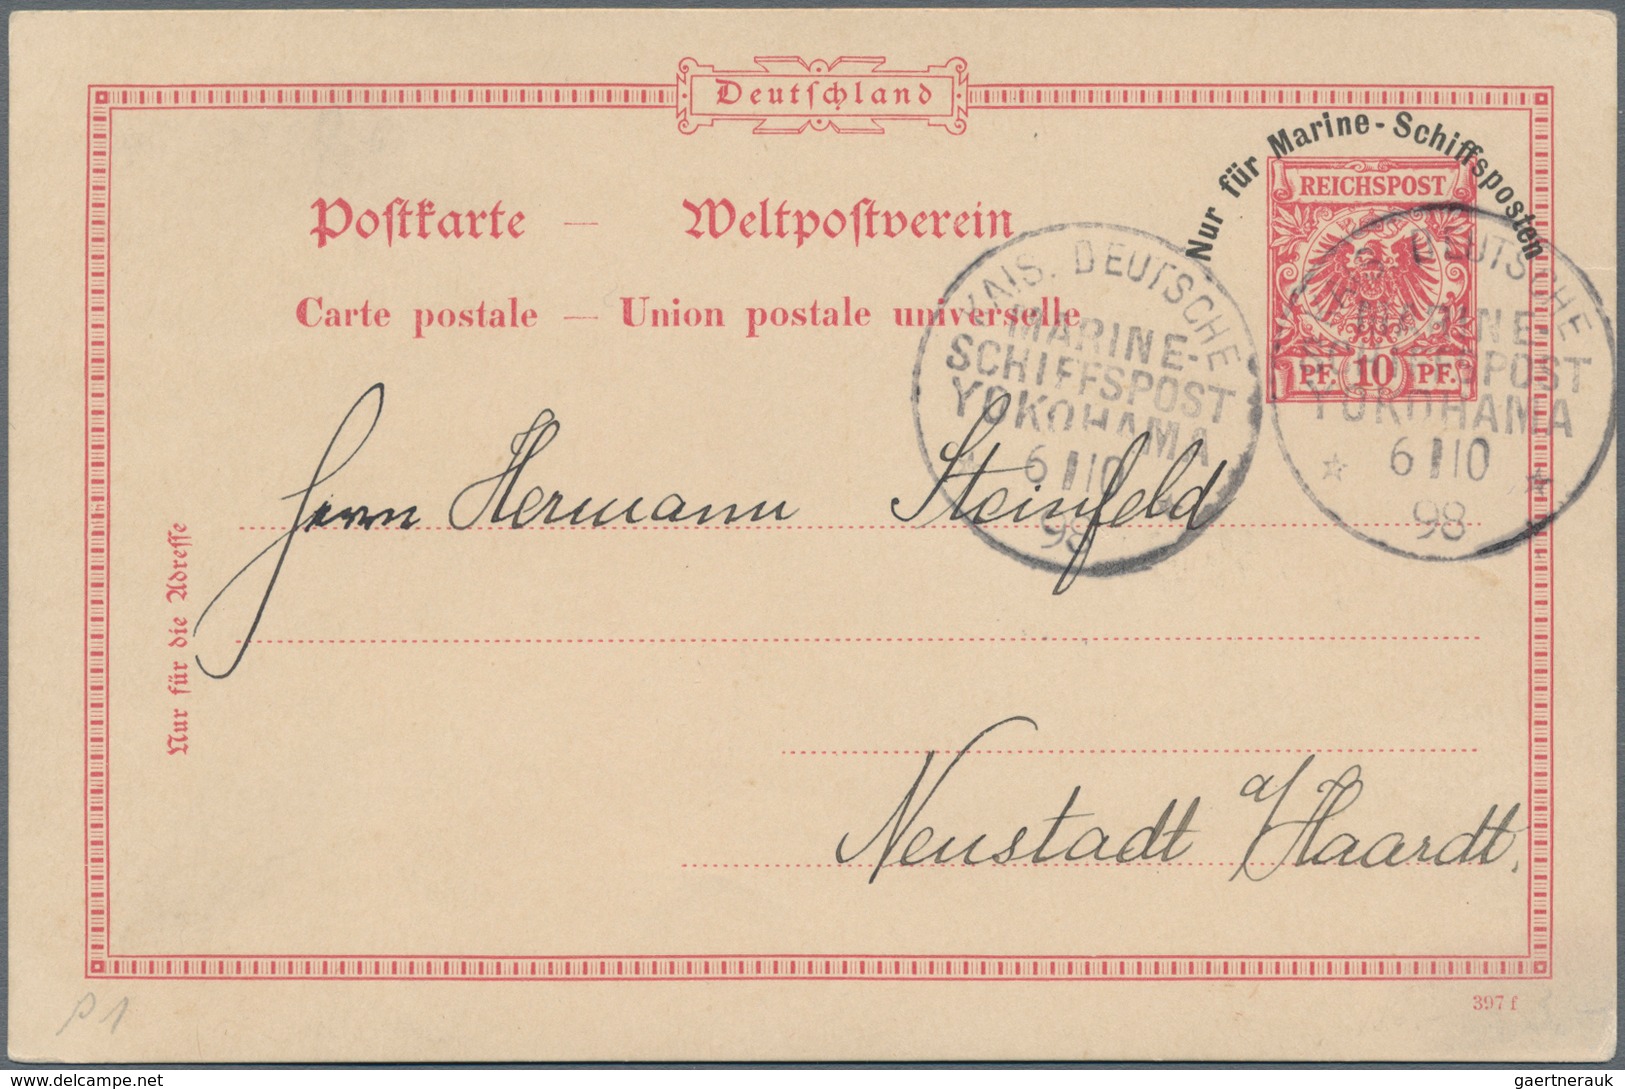 Deutschland
Nur für Marine-Schiffsposten
REICHSPOST
PF. 10 PF.
Postkarte — Weltpostverein
Carte postale — Union postale universelle
KAIS. DEUTSCHE
MARINE-
SCHIFFSPOST
YOKOHAMA
6 10
98
DEUTSCHE
MARINE-
SCHIFFSPOST
YOKOHAMA
6 10
98
Herrn Hermann Steinfeld
Nur für die Adresse
Neustadt a/Haardt.
P1
397 f
www.delcampe.net
gaertnerauk